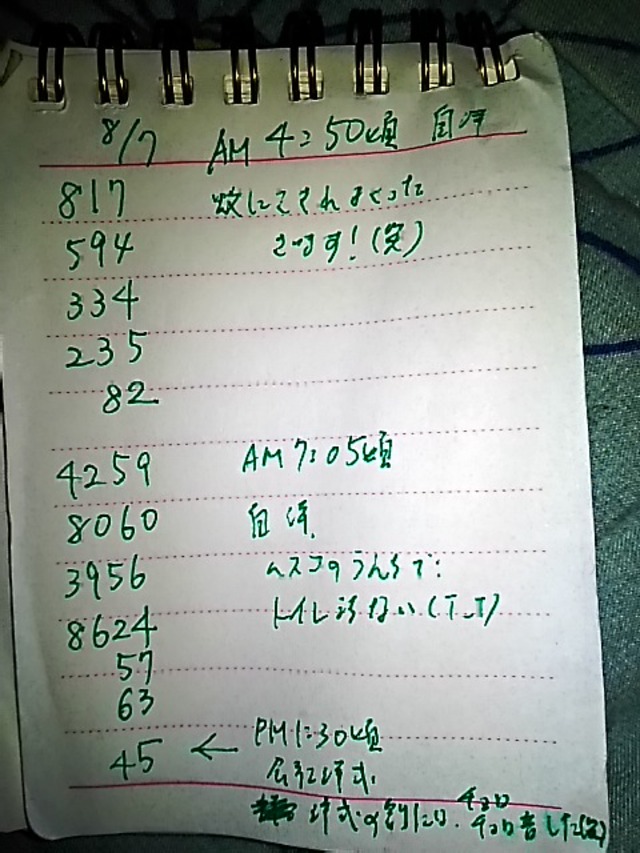 8/7 AM 4:50頃 自洋
817 蚊にさされまくった
594 さます!(笑)
334
235
82
4259 AM 7:05頃
8060 自洋
3956 ムスコのうんちで
8624 トイレ 行けない(T_T)
57
63
45 ← PM 1:30頃
会社 洋式
洋式の割には、チョロ
チョロ音した(笑)